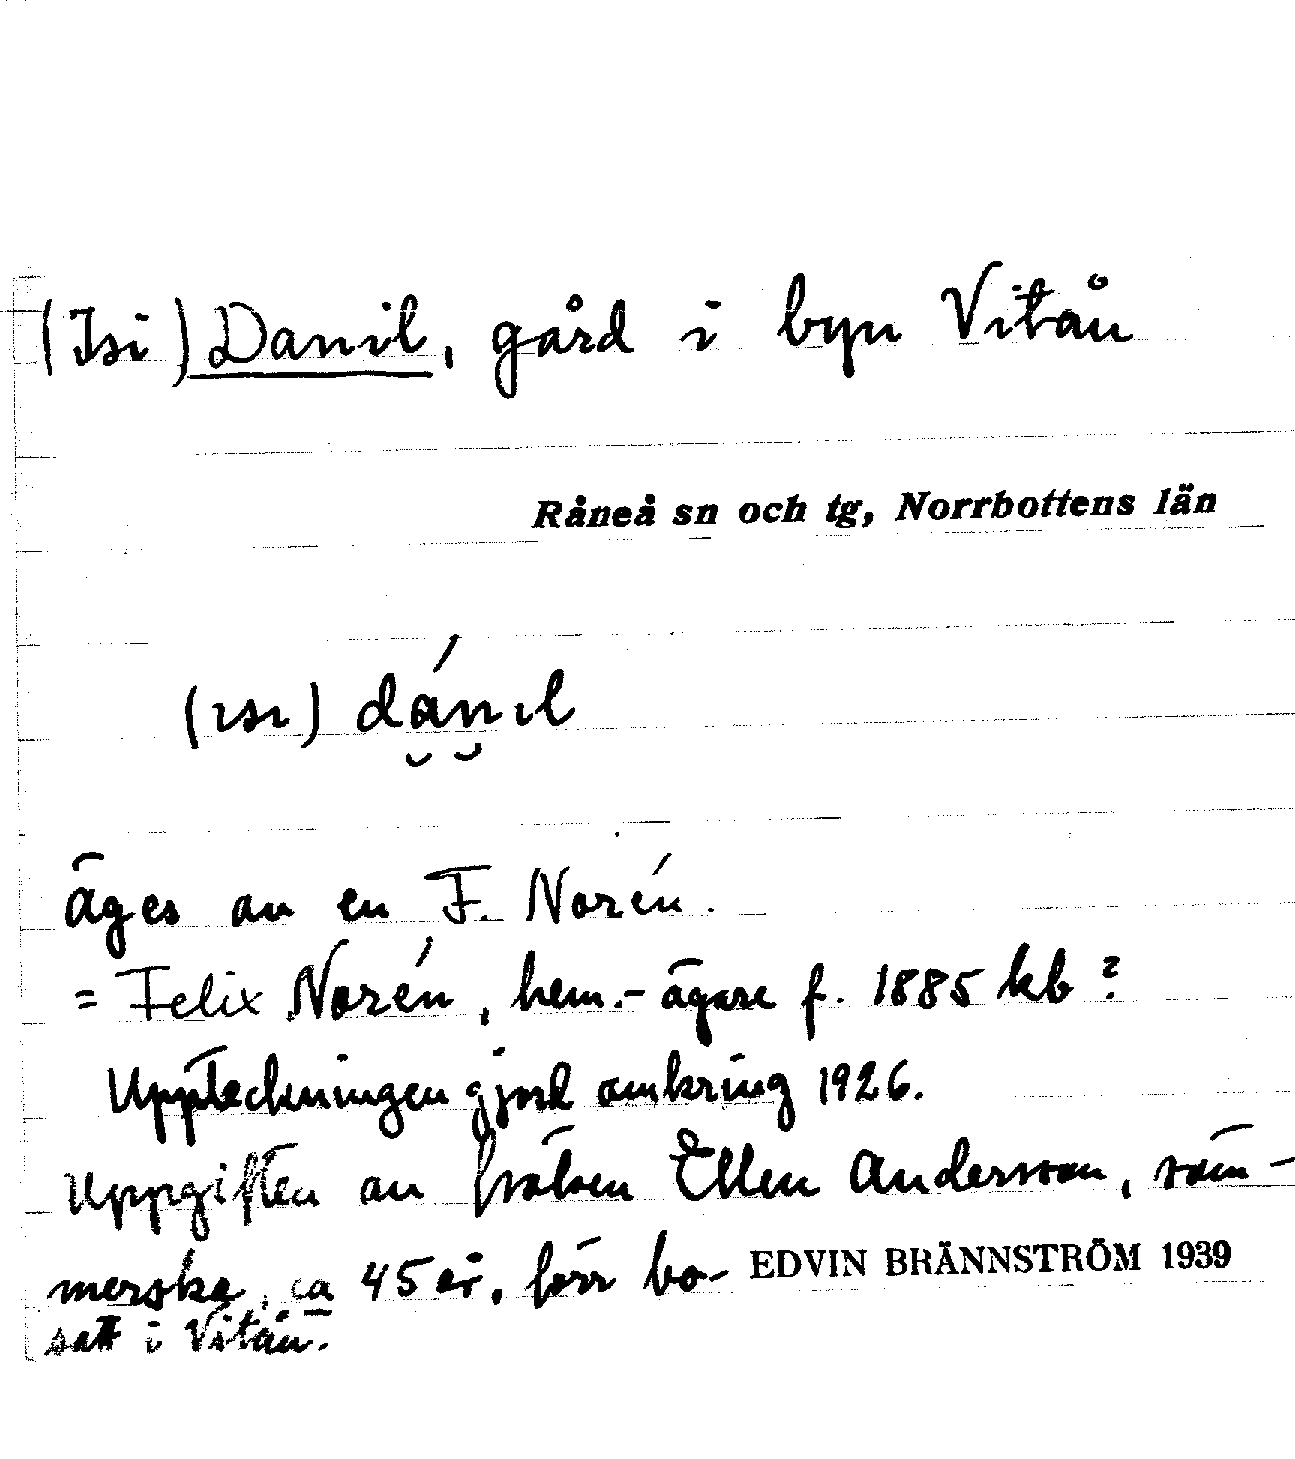 (Isi) Danil, gård i byn Vitån
Råneå sn och tg, Norrbottens län
(ısı) dánıl
äges av en F. Norén.
= Felix Norén, hem.-ägare f. 1885 kb?
Uppteckningen gjord omkring 1926.
Uppgiften av fröken Ellen Andersson, söm-
merska, ca 45 år, förr bo-
EDVIN BRÄNNSTRÖM 1939
satt i Vitån.